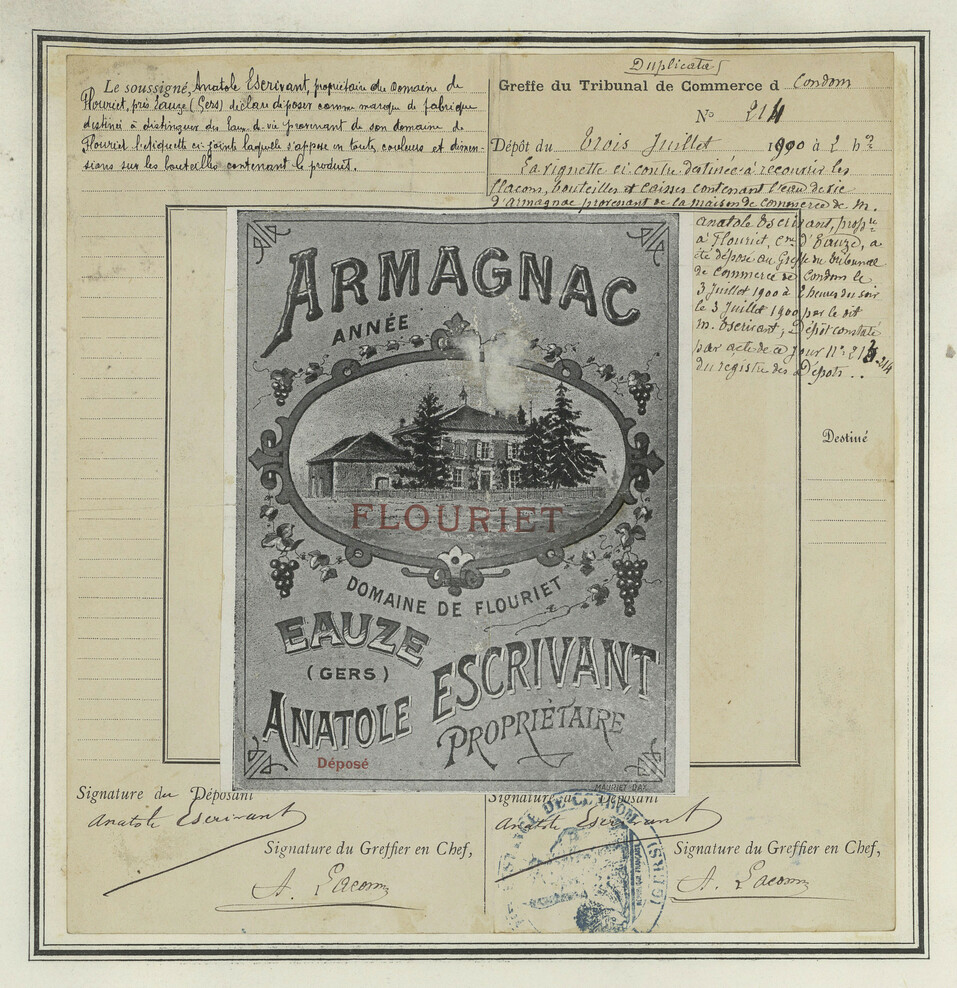 Le soussigné, Anatole Escrivant, propriétaire du Domaine de
Flouriet, près Eauze (Gers) déclare déposer comme marque de fabrique
destinée à distinguer des Eaux-de-vie provenant de son domaine de
Flouriet l'étiquette ci-jointe laquelle s'appose en toutes couleurs et dimen-
sions sur les bouteilles contenant le produit.
Duplicata
Greffe du Tribunal de Commerce d Condom
No 214
Dépôt du trois Juillet 1900 à 2 hres
La vignette ci contre destinée à recouvrir les
flacons, bouteilles et caisses contenant l'eau de vie
d'Armagnac provenant de la maison de commerce de M.
Anatole Escrivant, propre
à Flouriet, cne d'Eauze, a
été déposé au Greffe du tribunal
de Commerce de Condom le
3 Juillet 1900 à 2 heures du soir
le 3 Juillet 1900 par le dit
M. Escrivant, Dépôt constaté
par acte de ce jour No 214
du registre des Dépôts..
Destiné
ARMAGNAC
ANNÉE
FLOURIET
DOMAINE DE FLOURIET
EAUZE
(GERS)
ANATOLE ESCRIVANT
PROPRIÉTAIRE
Déposé
MAURIET-DAX
Signature du Déposant
Anatole Escrivant
Signature du Greffier en Chef,
A. Lacomme
Signature du Déposant
Anatole Escrivant
Signature du Greffier en Chef,
A. Lacomme
DE CONDOM (GERS)